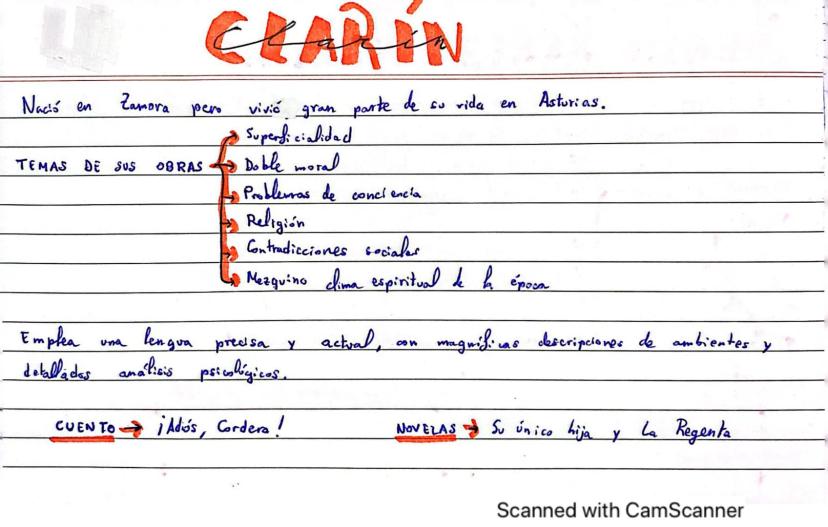 CLARÍN
Clarín
Nació en Zamora pero vivió gran parte de su vida en Asturias.
TEMAS DE SUS OBRAS
Superficialidad
Doble moral
Problemas de conciencia
Religión
Contradicciones sociales
Mezquino clima espiritual de la época
Emplea una lengua precisa y actual, con magníficas descripciones de ambientes y
detallados análisis psicológicos.
CUENTO → ¡Adiós, Cordera! NOVELAS → Su único hija y La Regenta
Scanned with CamScanner